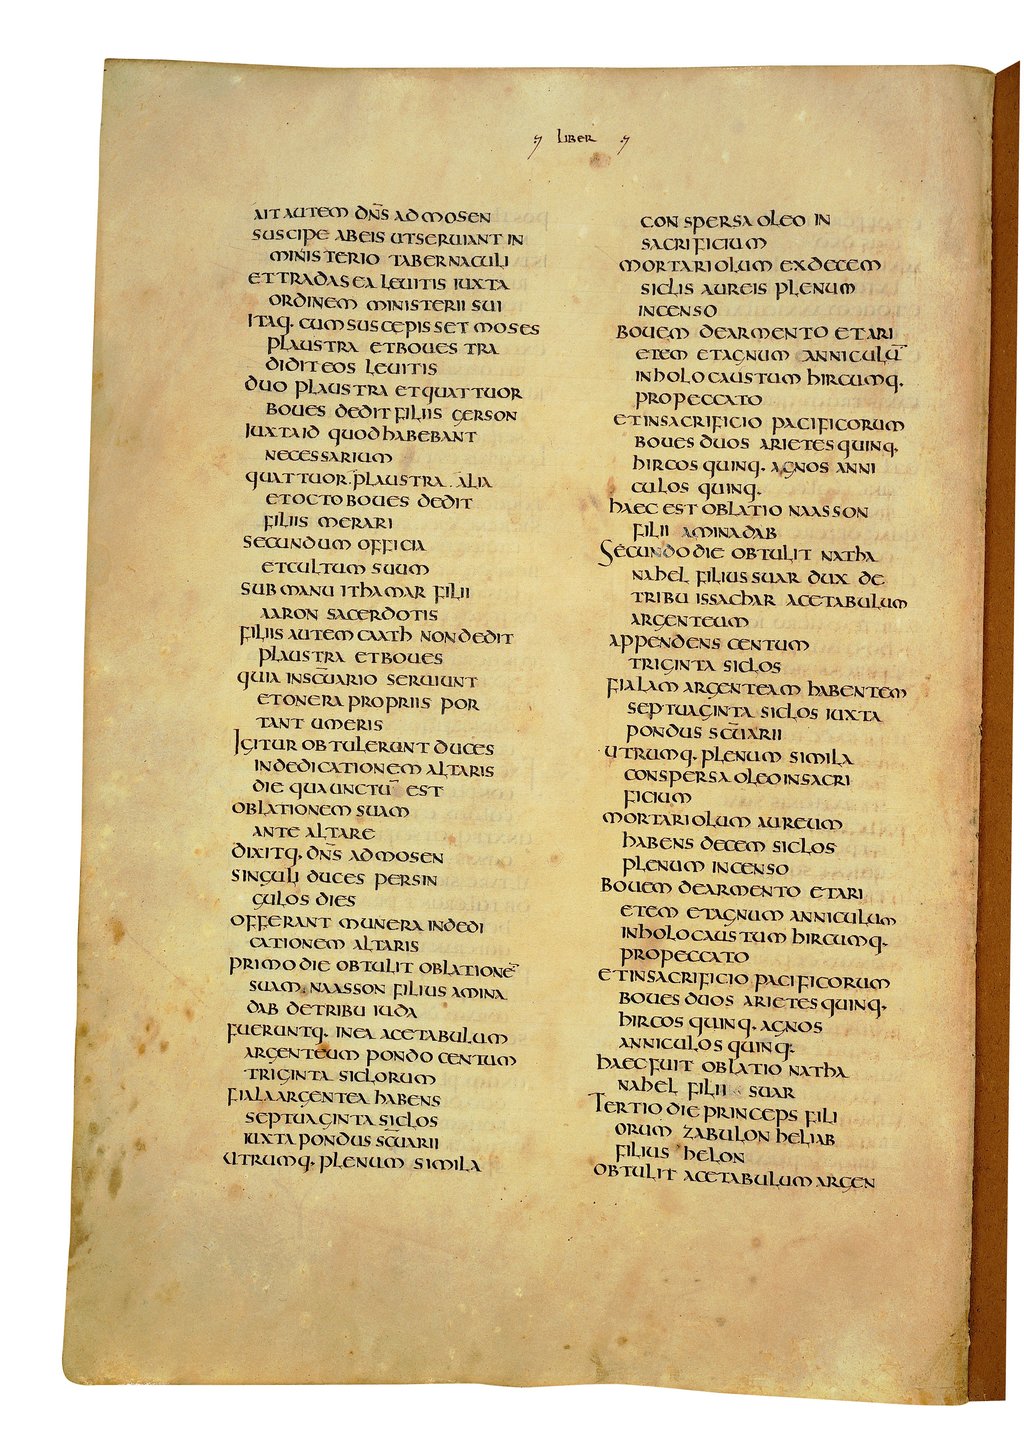 LIBER
AIT AUTEM DN̄S AD MOSEN
SUSCIPE AB EIS UT SERUIANT IN
MINISTERIO TABERNACULI
ET TRADAS EA LEUITIS IUXTA
ORDINEM MINISTERII SUI
ITAQ· CUM SUSCEPISSET MOSES
PLAUSTRA ET BOUES TRA
DIDIT EOS LEUITIS
DUO PLAUSTRA ET QUATTUOR
BOUES DEDIT FILIIS GERSON
IUXTA ID QUOD HABEBANT
NECESSARIUM
QUATTUOR PLAUSTRA ALIA
ET OCTO BOUES DEDIT
FILIIS MERARI
SECUNDUM OFFICIA
ET CULTUM SUUM
SUB MANU ITHAMAR FILII
AARON SACERDOTIS
FILIIS AUTEM CAATH NON DEDIT
PLAUSTRA ET BOUES
QUIA IN SC̄UARIO SERUIUNT
ET ONERA PROPRIIS POR
TANT UMERIS
IGITUR OBTULERUNT DUCES
IN DEDICATIONEM ALTARIS
DIE QUA UNCTŪ EST
OBLATIONEM SUAM
ANTE ALTARE
DIXITQ· DN̄S AD MOSEN
SINGULI DUCES PER SIN
GULOS DIES
OFFERANT MUNERA IN DEDI
CATIONEM ALTARIS
PRIMO DIE OBTULIT OBLATIONĒ
SUAM NAASSON FILIUS AMINA
DAB DE TRIBU IUDA
FUERUNTQ· IN EA ACETABULUM
ARGENTEUM PONDO CENTUM
TRIGINTA SICLORUM
FIALA ARGENTEA HABENS
SEPTUAGINTA SICLOS
IUXTA PONDUS SC̄UARII
UTRUMQ· PLENUM SIMILA
CONSPERSA OLEO IN
SACRIFICIUM
MORTARIOLUM EX DECEM
SICLIS AUREIS PLENUM
INCENSO
BOUEM DE ARMENTO ET ARI
ETEM ET AGNUM ANNICULŪ
IN HOLOCAUSTUM HIRCUMQ·
PRO PECCATO
ET IN SACRIFICIO PACIFICORUM
BOUES DUOS ARIETES QUINQ·
HIRCOS QUINQ· AGNOS ANNI
CULOS QUINQ·
HAEC EST OBLATIO NAASSON
FILII AMINADAB
SECUNDO DIE OBTULIT NATHA
NAHEL FILIUS SUAR DUX DE
TRIBU ISSACHAR ACETABULUM
ARGENTEUM
APPENDENS CENTUM
TRIGINTA SICLOS
FIALAM ARGENTEAM HABENTEM
SEPTUAGINTA SICLOS IUXTA
PONDUS SC̄UARII
UTRUMQ· PLENUM SIMILA
CONSPERSA OLEO IN SACRI
FICIUM
MORTARIOLUM AUREUM
HABENS DECEM SICLOS
PLENUM INCENSO
BOUEM DE ARMENTO ET ARI
ETEM ET AGNUM ANNICULUM
IN HOLOCAUSTUM HIRCUMQ·
PRO PECCATO
ET IN SACRIFICIO PACIFICORUM
BOUES DUOS ARIETES QUINQ·
HIRCOS QUINQ· AGNOS
ANNICULOS QUINQ·
HAEC FUIT OBLATIO NATHA
NAHEL FILII SUAR
TERTIO DIE PRINCEPS FILI
ORUM ZABULON HELIAB
FILIUS HELON
OBTULIT ACETABULUM ARGEN